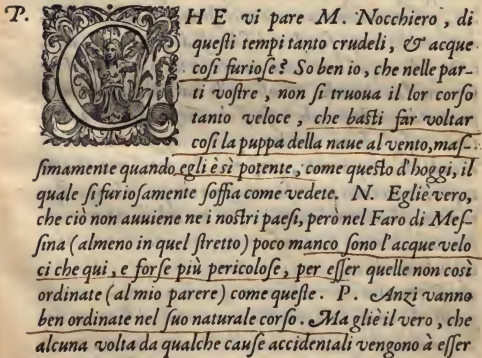 P. CHE vi pare M. Nocchiero, di
queſti tempi tanto crudeli, & acque
coſi furioſe? So ben io, che nelle par-
ti voſtre, non ſi truoua il lor corſo
tanto veloce, che baſti far voltar
coſi la puppa della naue al vento, maſ-
ſimamente quando egli è sì potente, come queſto d'hoggi, il
quale ſi furioſamente ſoffia come vedete. N. Egliè vero,
che ciò non auuiene ne i noſtri paeſi, però nel Faro di Meſ-
ſina (almeno in quel ſtretto) poco manco ſono l'acque velo
ci che qui, e forſe più pericoloſe, per eſſer quelle non così
ordinate (al mio parere) come queſte. P. Anzi vanno
ben ordinate nel ſuo naturale corſo. Ma gliè il vero, che
alcuna volta da qualche cauſe accidentali vengono à eſſer